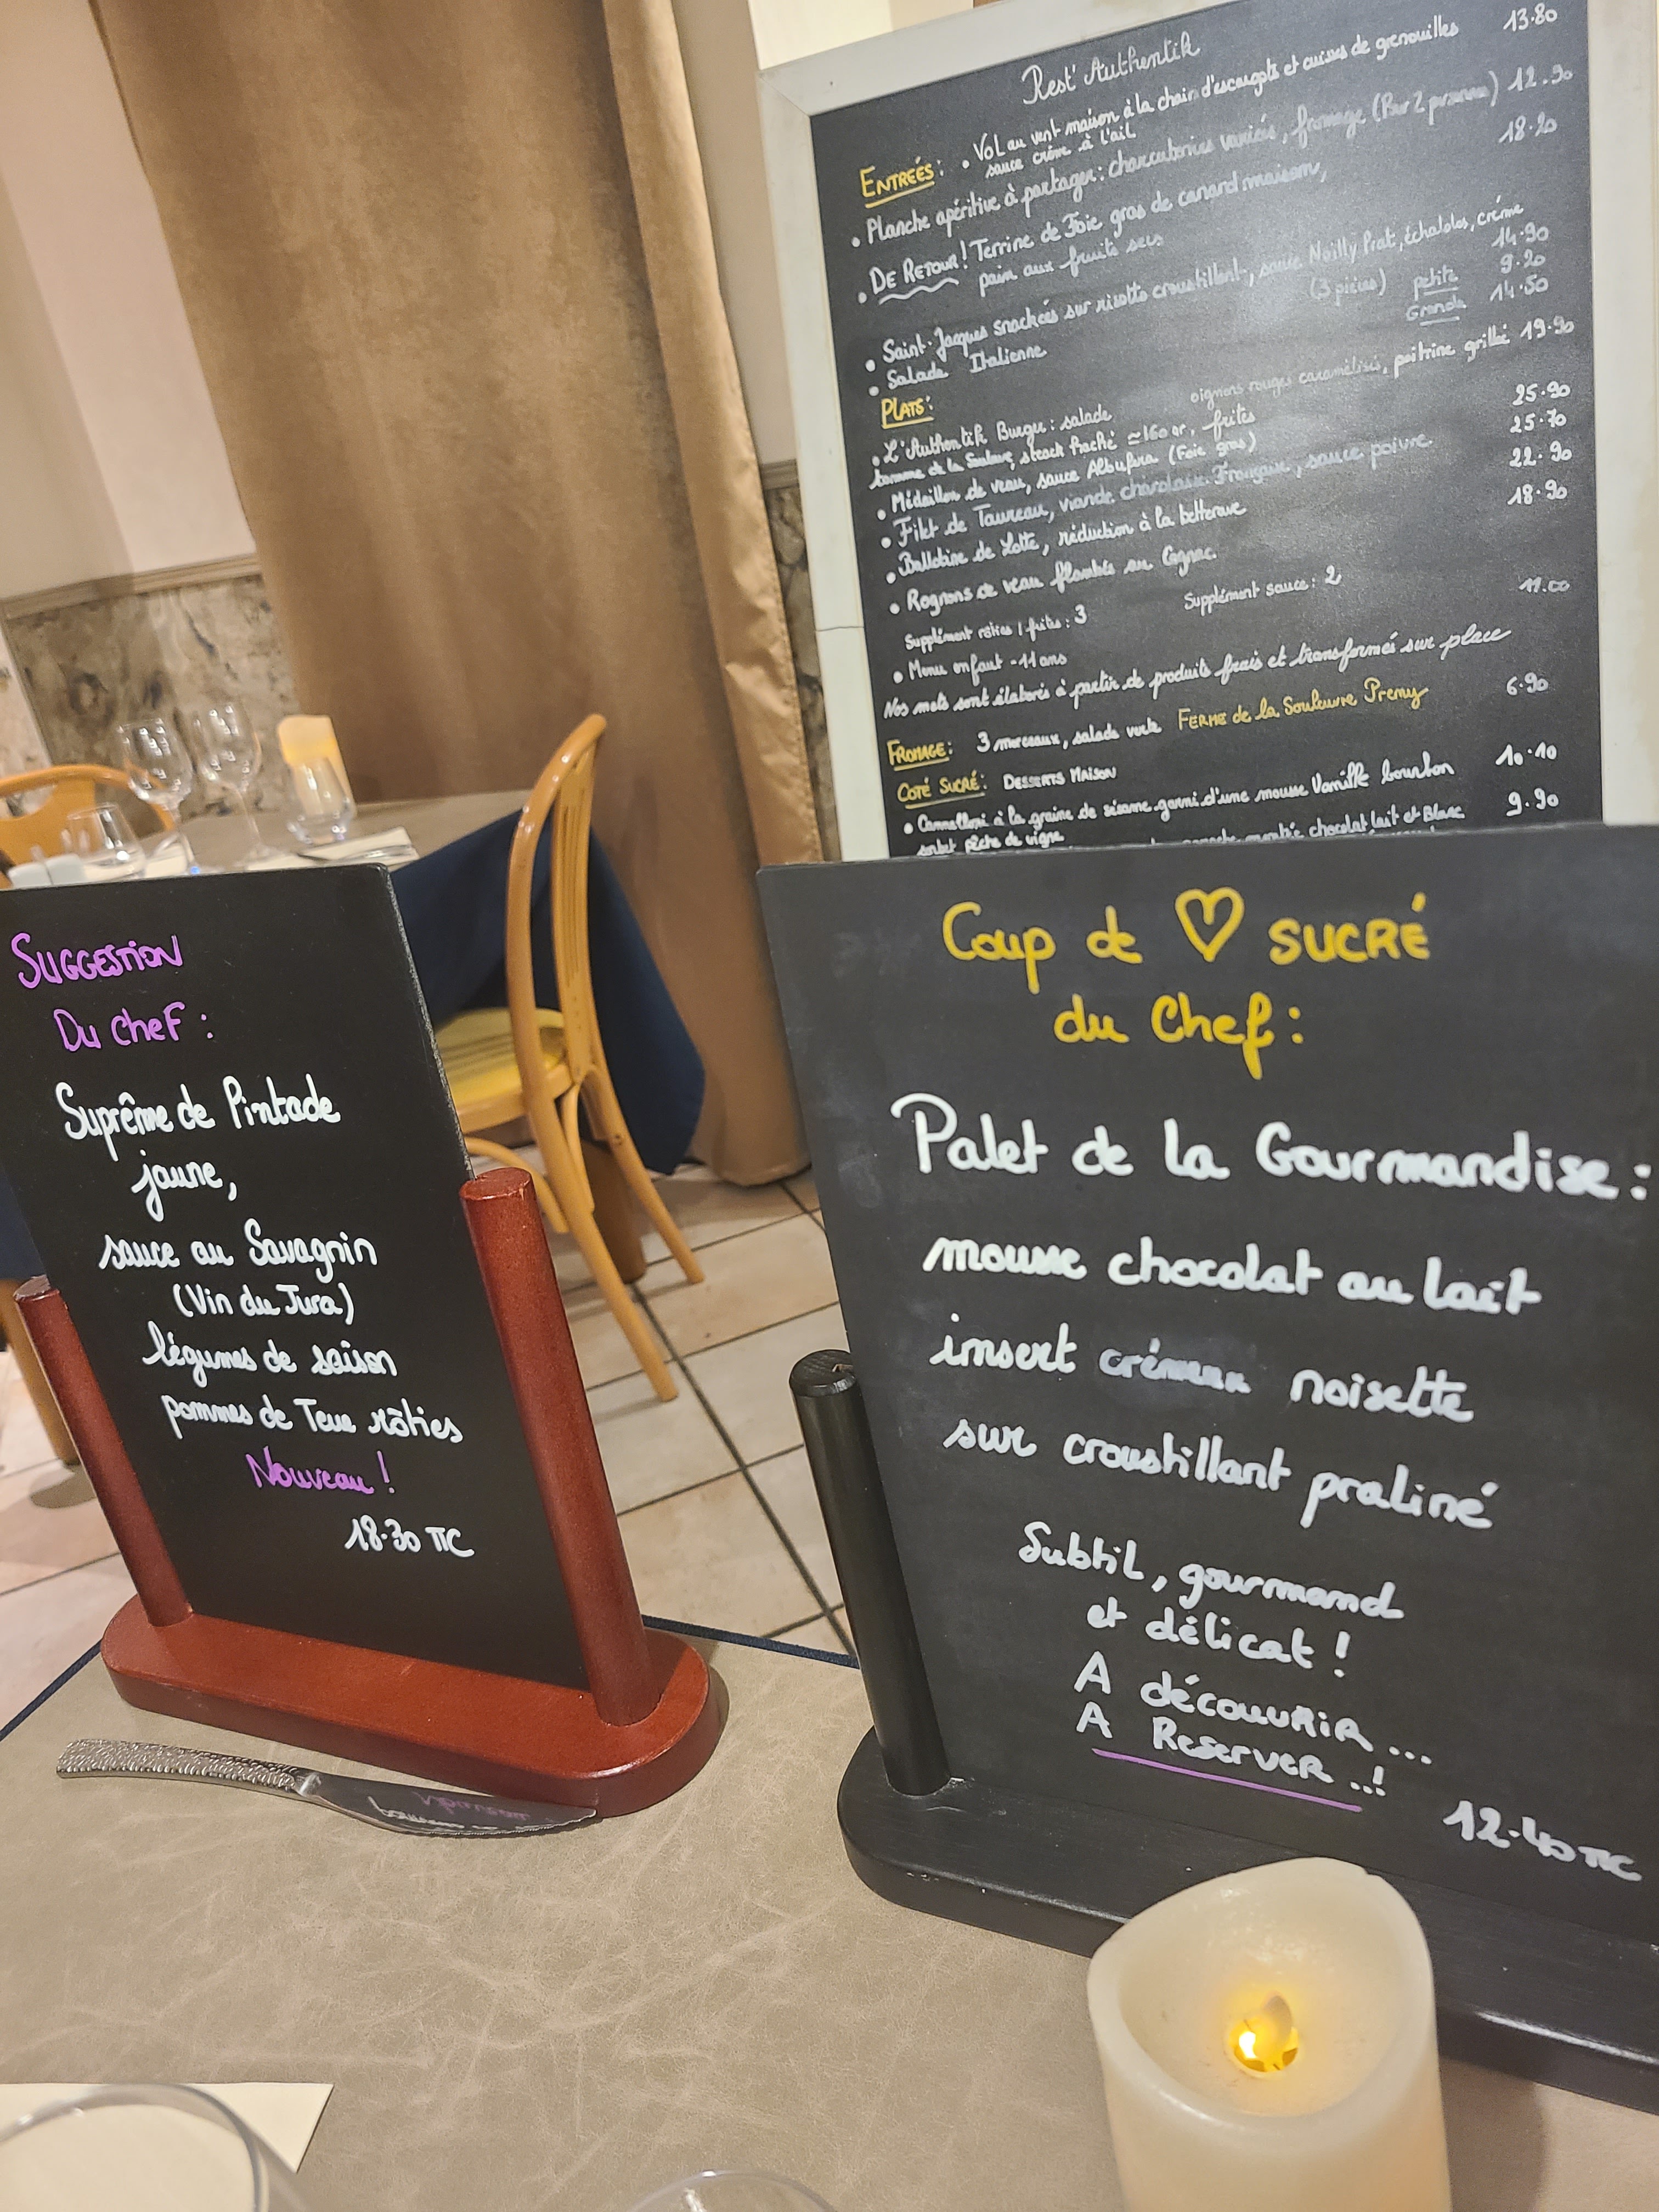 Rest' Authentik
ENTREÉS: • Vol au vent maison à la chair d'escargots et cuisses de grenouilles 13.80
sauce crème à l'ail
• Planche apéritive à partager: charcuteries variées, fromage (Pour 2 personnes) 12.90
• DE RETOUR! Terrine de Foie gras de canard maison, 18.20
pain aux fruits secs
• Saint-Jacques snackées sur risotto croustillant, sauce Noilly Prat, échalotes, crème
(3 pièces) 14.90
• Salade Italienne petite 9.20
Grande 14.50
PLATS:
• L'Authentik Burger: salade oignons rouges caramélisés, poitrine grillée 19.90
tomme de la Souleuvre, steack haché ≈160 gr, frites
• Médaillon de veau, sauce Albufera (Foie gras) 25.90
• Filet de Taureau, viande charolaise Française, sauce poivre. 25.70
• Ballotine de Lotte, réduction à la betterave 22.90
• Rognons de veau flambés au Cognac. 18.90
Supplément rôties / frites: 3 Supplément sauce: 2
• Menu enfant -11 ans 11.00
Nos mets sont élaborés à partir de produits frais et transformés sur place
FROMAGE: 3 morceaux, salade verte FERME de la Souleuvre Premy 6.90
COTÉ SUCRÉ: DESSERTS MAISON
• Cannelloni à la graine de sésame garni d'une mousse Vanille bourbon 10.10
sorbet pêche de vigne
ganache montée chocolat lait et Blanc 9.90
SUGGESTION
DU CHEF:
Suprême de Pintade
jaune,
sauce au Savagnin
(Vin du Jura)
légumes de saison
pommes de Terre rôties
Nouveau!
18.30 TTC
Coup de ♡ SUCRÉ
du Chef:
Palet de la Gourmandise:
mousse chocolat au lait
insert crémeux noisette
sur croustillant praliné
Subtil, gourmand
et délicat!
A découvrir...
A Reserver..!
12.40 TTC